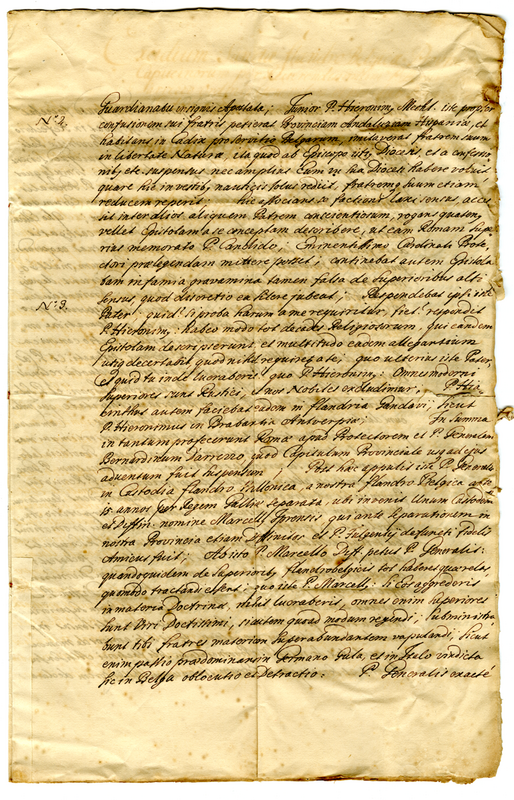 Guardianatu insignis Apostata; Junior P. Hieronim. Mechl. iste propter
N.º 2. confusionem sui fratris petierat Provinciam Andalusiam Hispaniæ, et
habitans in Cadix pro servitio Belgarum, fratrem suum
in libertate Naturæ, ita quod ab Episcopo istius Diocesis et a
suspensus nec amplius Eum in sua Diocesi habere voluit
quare hic in vestibus nauticis solus rediit, fratremq suum etiam
reducem reperit; hic associans se factioni laxi sensus,
sit interalios aliquem Patrem conscientiosum, rogans quatenus
vellet Epistolam a se conceptam describere, ut eam Romam
memorato P. Candido; Eminentissimo Cardinali Prote,
ctori prælegendam mittere posset; continebat autem Epistola
tam infamia gravamina tamen falsa de Superioribus
sensus, quod discretio ea silere jubeat; Respondebat ipsi iste
N.º 3. Pater, quid si proba harum a me requiritur, fiet? respondit
P. Hieronim, habeo modo tot decades Religiosorum, qui eandem
Epistolam descripserunt, et multitudo eadem allegantium
decertabit quod nihil requiret a te; quo ulterius iste Pater,
et quid tu inde lucraberis? quo P. Hieronim: Omnes moderni
Superiores sunt Rustici, et nos Nobiles excludimur. P. Hia,
cinthus autem faciebat eadem in flandria Gandavi, sicut
P. Hieronimus in Brabantia Antverpiæ; In summa
in tantum profecerunt Romæ apud Protectorem et P. Generalem
Bernardinum quod Capitulum Provinciale usq ad ejus
adventum fuit suspensum; Post hæc appulit iste P. Generalis
in Custodia flandro Wallonica, a nostra flandro Belgica ante
15 annos per Regem Galliæ separata, ubi invenit Unum Custodem
et Diffin. nomine Marcelli Iprensis, qui ante separationem in
nostra Provincia etiam Diffinitor et P. fulgentij defuncti fidelis
Amicus fuit; Ab isto P. Marcello Diff. petiit P. Generalis:
quandoquidem de Superioribus flandrobelgicis tot haberet querelas
quomodo tractandi essent; quo iste P. Marcell.: si Eos aggrederis
in materia Doctrinæ, nihil lucraberis, omnes enim superiores
sunt Viri Doctissimi, sicut tem quoad modum regendi; Subministra
bunt tibi fratres materiam superabundantem vapulandi, sicut
enim passio prædominans in Germano Gula, et in Italo vindicta
sic in Belga oblocutio et Detractio: P. Generalis exacté